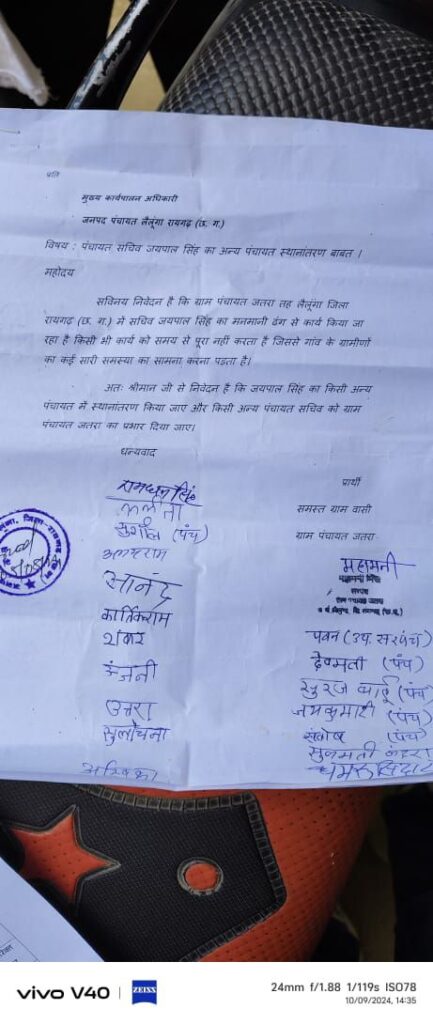 प्रति
मुख्य कार्यपालन अधिकारी
जनपद पंचायत लैलूंगा रायगढ़ (छ. ग.)
विषय : पंचायत सचिव जयपाल सिंह का अन्य पंचायत स्थानांतरण बाबत ।
महोदय
सविनय निवेदन है कि ग्राम पंचायत जतरा तह लैलूंगा जिला
रायगढ (छ. ग.) में सचिव जयपाल सिंह का मनमानी ढंग से कार्य किया जा
रहा है किसी भी कार्य को समय से पूरा नहीं करता है जिससे गांव के ग्रामीणों
का कई सारी समस्या का सामना करना पड़ता है।
अतः श्रीमान जी से निवेदन है कि जयपाल सिंह का किसी अन्य
पंचायत में स्थानांतरण किया जाए और किसी अन्य पंचायत सचिव को ग्राम
पंचायत जतरा का प्रभार दिया जाए।
धन्यवाद
रामधन सिंह
ललिता
सुशील (पंच)
सानंद
कार्तिकराम
शंकर
अंजनी
उत्तरा
सुलोचना
प्रार्थी
समस्त ग्राम वासी
ग्राम पंचायत जतरा
महामनी
महामनी सिंह
सरपंच
ग्राम पंचायत जतरा
पवन (उप. सरपंच)
देवमती (पंच)
सुरज बाई (पंच)
जयकुमारी (पंच)
संतोष (पंच)
सुनमती
vivo V40 | ZEISS
24mm f/1.88 1/119s ISO78
10/09/2024, 14:35